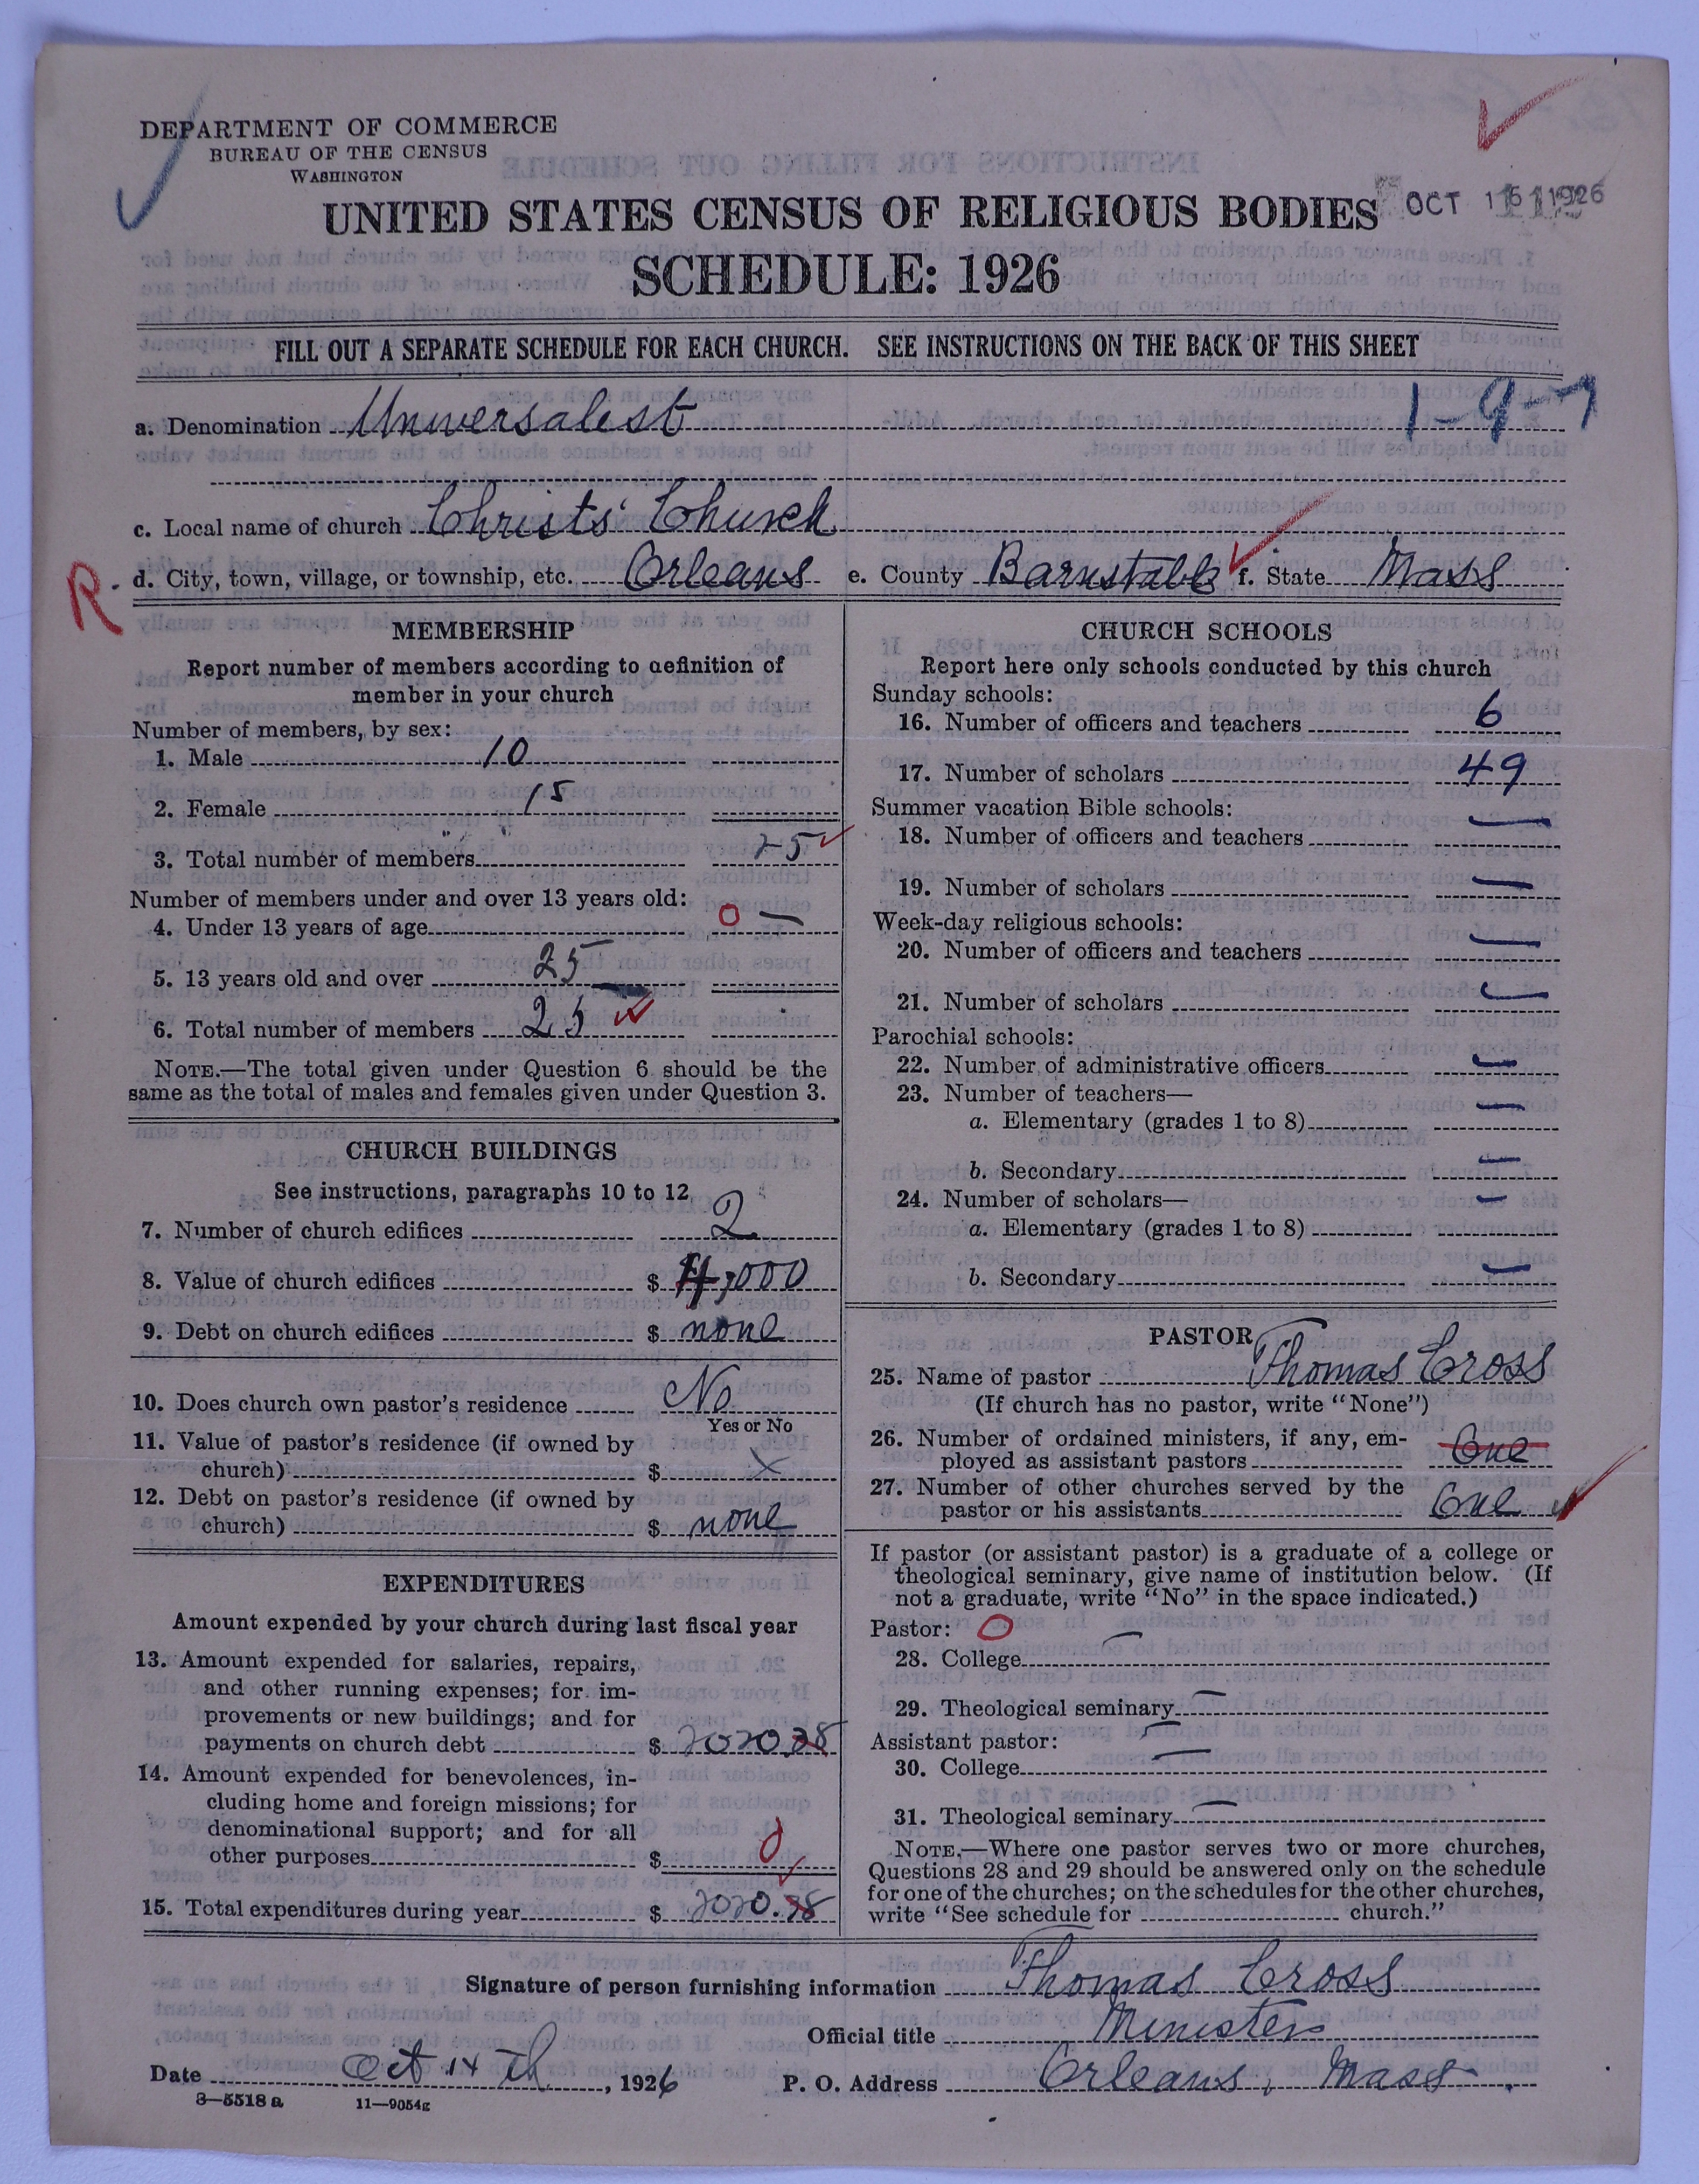 DEPARTMENT OF COMMERCE
BUREAU OF THE CENSUS
WASHINGTON
UNITED STATES CENSUS OF RELIGIOUS BODIES
OCT 1926
SCHEDULE: 1926
FILL OUT A SEPARATE SCHEDULE FOR EACH CHURCH. SEE INSTRUCTIONS ON THE BACK OF THIS SHEET
1-9-7
a. Denomination Universalist
c. Local name of church Christs' Church
R. d. City, town, village, or township, etc. Orleans e. County Barnstable f. State Mass
MEMBERSHIP
Report number of members according to definition of
member in your church
Number of members, by sex:
1. Male 10
2. Female 15
3. Total number of members 25
Number of members under and over 13 years old:
4. Under 13 years of age 0 —
5. 13 years old and over 25
6. Total number of members 25
NOTE.—The total given under Question 6 should be the
same as the total of males and females given under Question 3.
CHURCH BUILDINGS
See instructions, paragraphs 10 to 12
7. Number of church edifices 2
8. Value of church edifices $ 4,000
9. Debt on church edifices $ none
10. Does church own pastor's residence No
Yes or No
11. Value of pastor's residence (if owned by
church) $ x
12. Debt on pastor's residence (if owned by
church) $ none
EXPENDITURES
Amount expended by your church during last fiscal year
13. Amount expended for salaries, repairs,
and other running expenses; for im-
provements or new buildings; and for
payments on church debt $ 2020.38
14. Amount expended for benevolences, in-
cluding home and foreign missions; for
denominational support; and for all
other purposes $ 0
15. Total expenditures during year $ 2020.38
CHURCH SCHOOLS
Report here only schools conducted by this church
Sunday schools:
16. Number of officers and teachers 6
17. Number of scholars 49
Summer vacation Bible schools:
18. Number of officers and teachers —
19. Number of scholars —
Week-day religious schools:
20. Number of officers and teachers —
21. Number of scholars —
Parochial schools:
22. Number of administrative officers —
23. Number of teachers—
a. Elementary (grades 1 to 8) —
b. Secondary —
24. Number of scholars— —
a. Elementary (grades 1 to 8)
b. Secondary —
PASTOR
25. Name of pastor Thomas Cross
(If church has no pastor, write "None")
26. Number of ordained ministers, if any, em-
ployed as assistant pastors One
27. Number of other churches served by the
pastor or his assistants One
If pastor (or assistant pastor) is a graduate of a college or
theological seminary, give name of institution below. (If
not a graduate, write "No" in the space indicated.)
Pastor: 0
28. College —
29. Theological seminary —
Assistant pastor: —
30. College —
31. Theological seminary —
NOTE.—Where one pastor serves two or more churches,
Questions 28 and 29 should be answered only on the schedule
for one of the churches; on the schedules for the other churches,
write "See schedule for church."
Signature of person furnishing information Thomas Cross
Official title Minister
Date Oct 14th, 1926 P. O. Address Orleans, Mass.
8—5518a 11—9054g